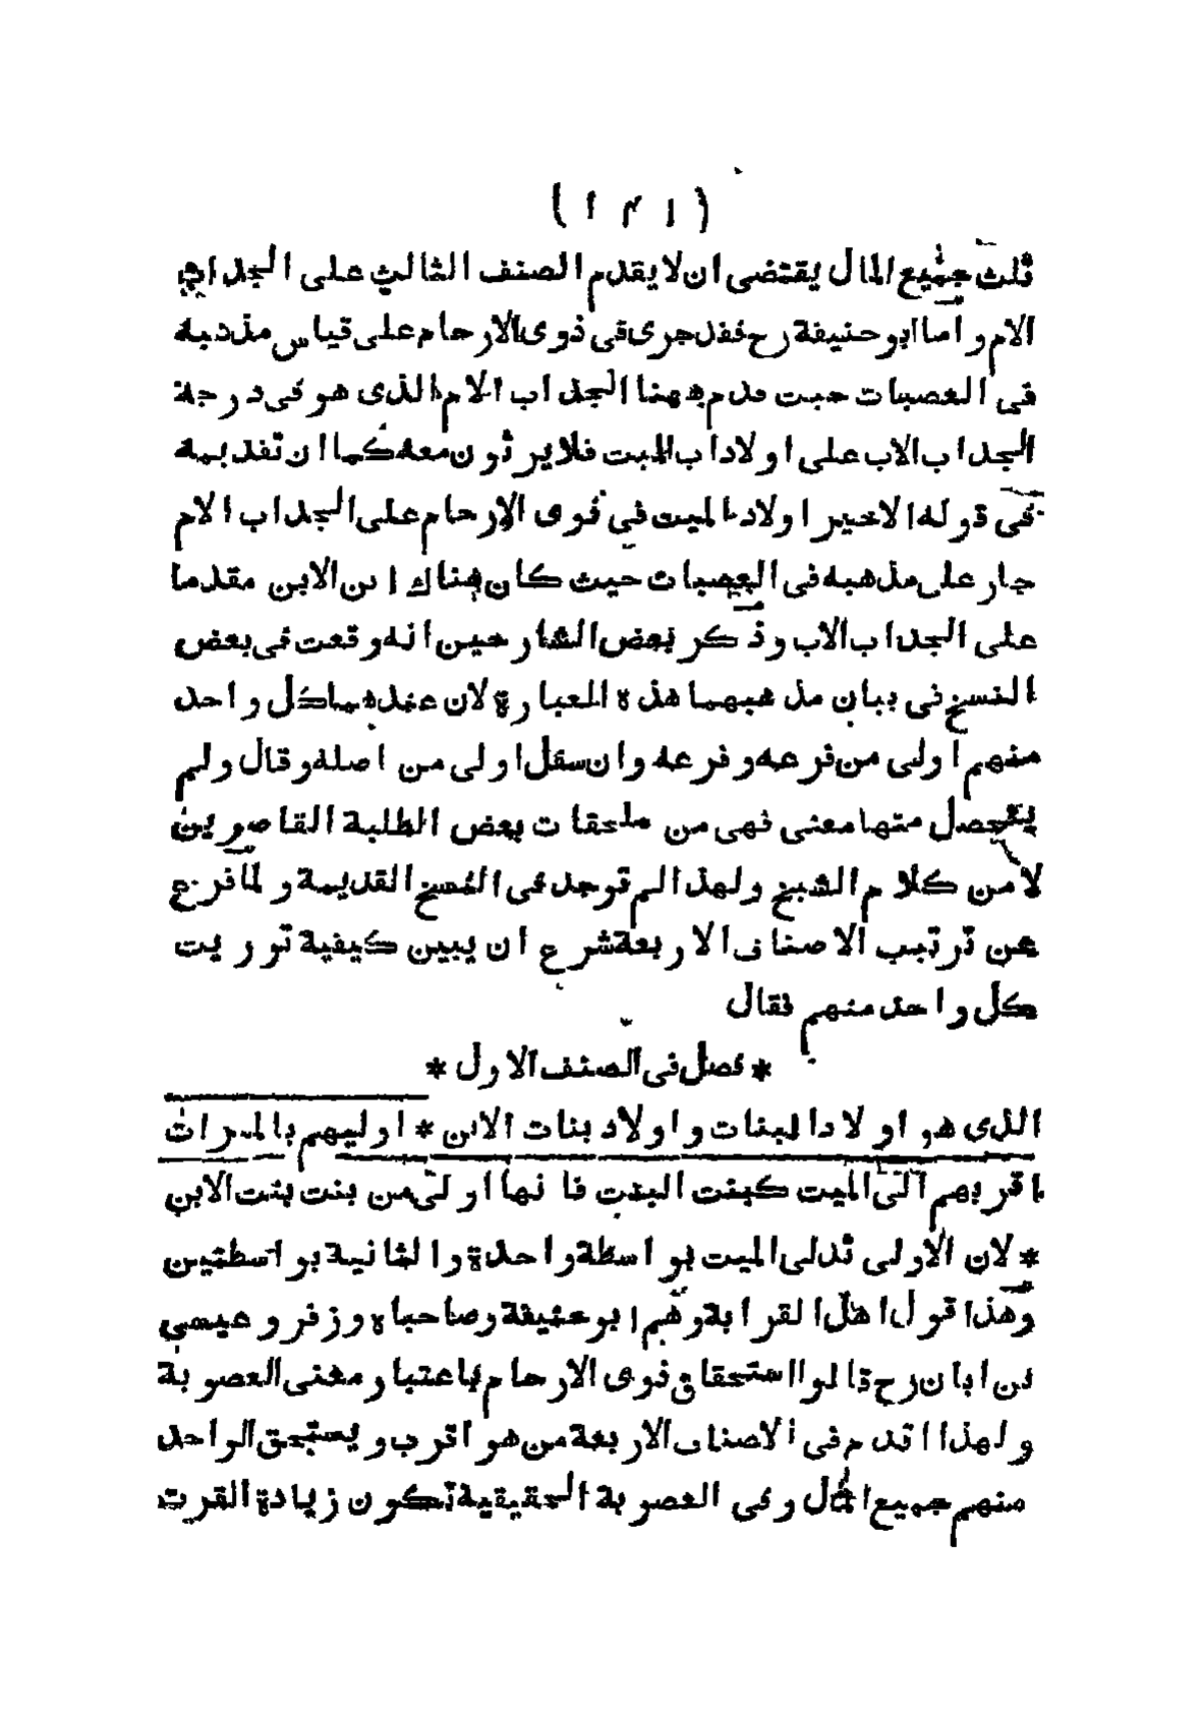 ثلث جميع المال يقتضى ان لا يقدم الصنف الثالث على الجد اب
الام و اما ابو حنيفة رح فقد جرى فى ذوى الارحام على قياس مذهبه
فى العصبات حيث قدم ههنا الجد اب الام الذى هو فى درجة
الجد اب الاب على اولاد اب الميت فلا يرثون معه كما ان تقديمه
فى قوله الاخير اولاد الميت فى ذوى الارحام على الجد اب الام
جار على مذهبه فى العصبات حيث كان هناك ابن الابن مقدما
على الجد اب الاب و ذكر بعض الشارحين انه وقعت فى بعض
النسخ فى بيان مذهبهما هذه العبارة لان عندهما كل واحد
منهم اولى من فرعه و فرعه و ان سفل اولى من اصله و قال و لم
يتحصل منها معنى فهى من ملحقات بعض الطلبة القاصرين
لا من كلام الشيخ و لهذا لم توجد فى النسخ القديمة و لما فرغ
عن ترتيب الاصناف الاربعة شرع ان يبين كيفية توريث
كل واحد منهم فقال
* فصل فى الصنف الاول *
الذى هو اولاد البنات و اولاد بنات الابن * اوليهم بالميراث
اقربهم الى الميت كبنت البنت فانها اولى من بنت بنت الابن
* لان الاولى تدلى الميت بواسطة واحدة و الثانية بواسطتين
و هذا قول اهل القرابة و هم ابو حنيفة و صاحباه و زفر و عيسى
بن ابان رح قالوا استحقاق ذوى الارحام باعتبار معنى العصوبة
و لهذا اقدم فى الاصناف الاربعة من هو اقرب و يستحق الواحد
منهم جميع المال و فى العصوبة الحقيقية تكون زيادة القرب